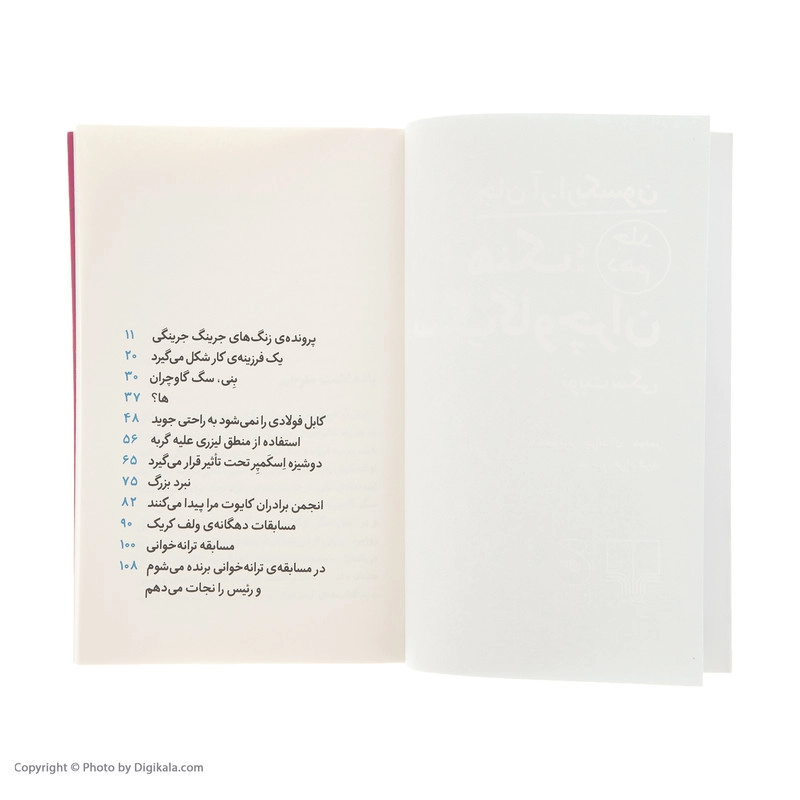 جان آر. اریکسون
جلد
دهم
هنک:
سگ گاوچران
پرونده‌ی زنگ‌های جرینگ جرینگی ۱۱
یک فرزینه‌ی کار شکل می‌گیرد ۲۰
بِنی، سگ گاوچران ۳۰
ها؟ ۳۷
کابل فولادی را نمی‌شود به راحتی جوید ۴۸
استفاده از منطق لیزری علیه گربه ۵۶
دوشیزه اِسکَمپِر تحت تأثیر قرار می‌گیرد ۶۵
نبرد بزرگ ۷۵
انجمن برادران کایوت مرا پیدا می‌کنند ۸۲
مسابقات دهگانه‌ی ولف کریک ۹۰
مسابقه ترانه‌خوانی ۱۰۰
در مسابقه‌ی ترانه‌خوانی برنده می‌شوم ۱۰۸
و رئیس را نجات می‌دهم
Copyright © Photo by Digikala.com